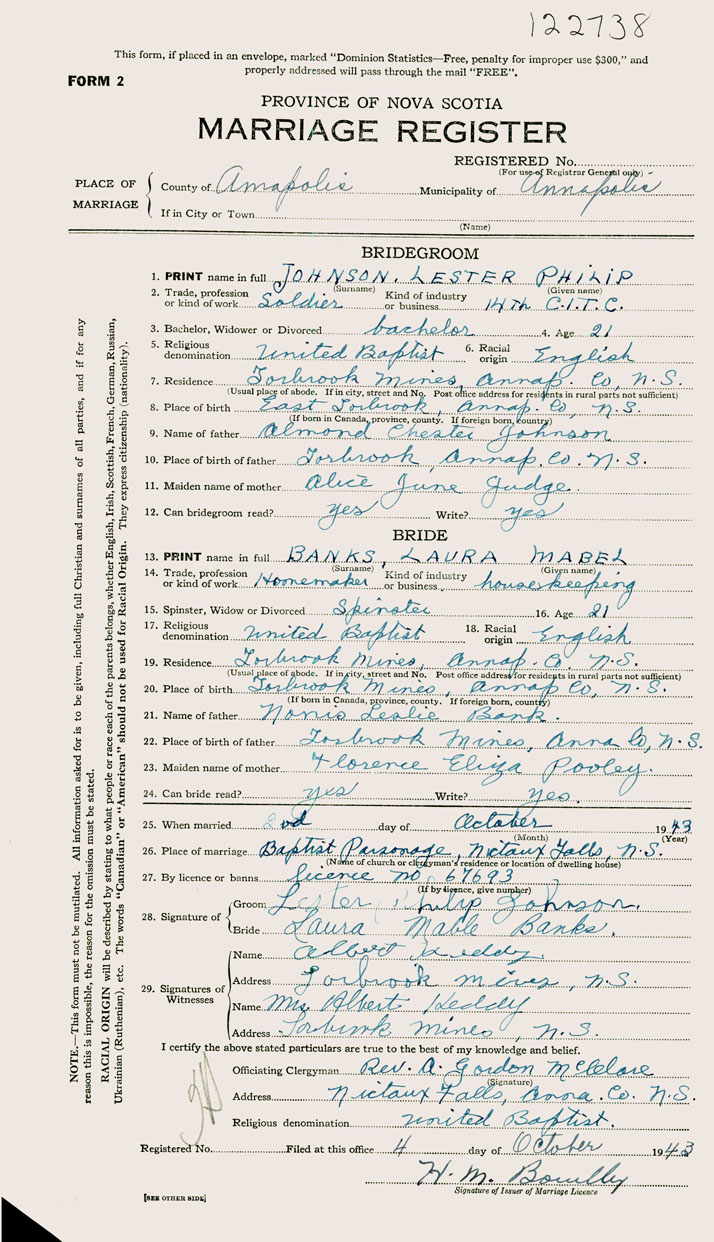 122738
This form, if placed in an envelope, marked "Dominion Statistics—Free, penalty for improper use $300," and
properly addressed will pass through the mail "FREE".
FORM 2
PROVINCE OF NOVA SCOTIA
MARRIAGE REGISTER
REGISTERED No.
(For use of Registrar General only)
PLACE OF MARRIAGE
County of Annapolis Municipality of Annapolis
If in City or Town
(Name)
BRIDEGROOM
1. PRINT name in full JOHNSON, LESTER PHILIP
(Surname) (Given name)
2. Trade, profession or kind of work Soldier Kind of industry or business 14th C.I.T.C.
3. Bachelor, Widower or Divorced bachelor 4. Age 21
5. Religious denomination United Baptist 6. Racial origin English
7. Residence Torbrook Mines, Annap. Co, N.S.
(Usual place of abode. If in city, street and No. Post office address for residents in rural parts not sufficient)
8. Place of birth East Torbrook, Annap. Co, N.S.
(If born in Canada, province, county. If foreign born, country)
9. Name of father Almond Chester Johnson
10. Place of birth of father Torbrook, Annap. Co. N.S.
11. Maiden name of mother Alice June Judge.
12. Can bridegroom read? yes Write? yes
BRIDE
13. PRINT name in full BANKS, LAURA MABEL
(Surname) (Given name)
14. Trade, profession or kind of work Homemaker Kind of industry or business housekeeping
15. Spinster, Widow or Divorced Spinster 16. Age 21
17. Religious denomination United Baptist 18. Racial origin English
19. Residence Torbrook Mines, Annap. Co, N.S.
(Usual place of abode. If in city, street and No. Post office address for residents in rural parts not sufficient)
20. Place of birth Torbrook Mines, Annap Co, N.S.
(If born in Canada, province, county. If foreign born, country)
21. Name of father Norris Leslie Bank.
22. Place of birth of father Torbrook Mines, Anna Co, N.S.
23. Maiden name of mother Florence Eliza Pooley.
24. Can bride read? yes Write? yes.
25. When married 2nd day of October 1943
(Month) (Year)
26. Place of marriage Baptist Parsonage, Nictaux Falls, N.S.
(Name of church or clergyman's residence or location of dwelling house)
27. By licence or banns licence no 67693
(If by licence, give number)
28. Signature of
Groom Lester Philip Johnson.
Bride Laura Mable Banks.
29. Signatures of Witnesses
Name Albert Keddy
Address Torbrook mines, N.S.
Name Mrs Albert Keddy
Address Torbrook Mines, N.S.
I certify the above stated particulars are true to the best of my knowledge and belief.
Officiating Clergyman Rev. A. Gordon McClare
(Signature)
Address Nictaux Falls, Anna. Co. N.S.
Religious denomination United Baptist.
Registered No. Filed at this office 4 day of October 1943
H. M.
Signature of Issuer of Marriage Licence
[SEE OTHER SIDE]
NOTE.—This form must not be mutilated. All information asked for is to be given, including full Christian and surnames of all parties, and if for any
reason this is impossible, the reason for the omission must be stated.
RACIAL ORIGIN will be described by stating to what people or race each of the parents belongs, whether English, Irish, Scottish, French, German, Russian,
Ukrainian (Ruthenian), etc. The words "Canadian" or "American" should not be used for Racial Origin. They express citizenship (nationality).